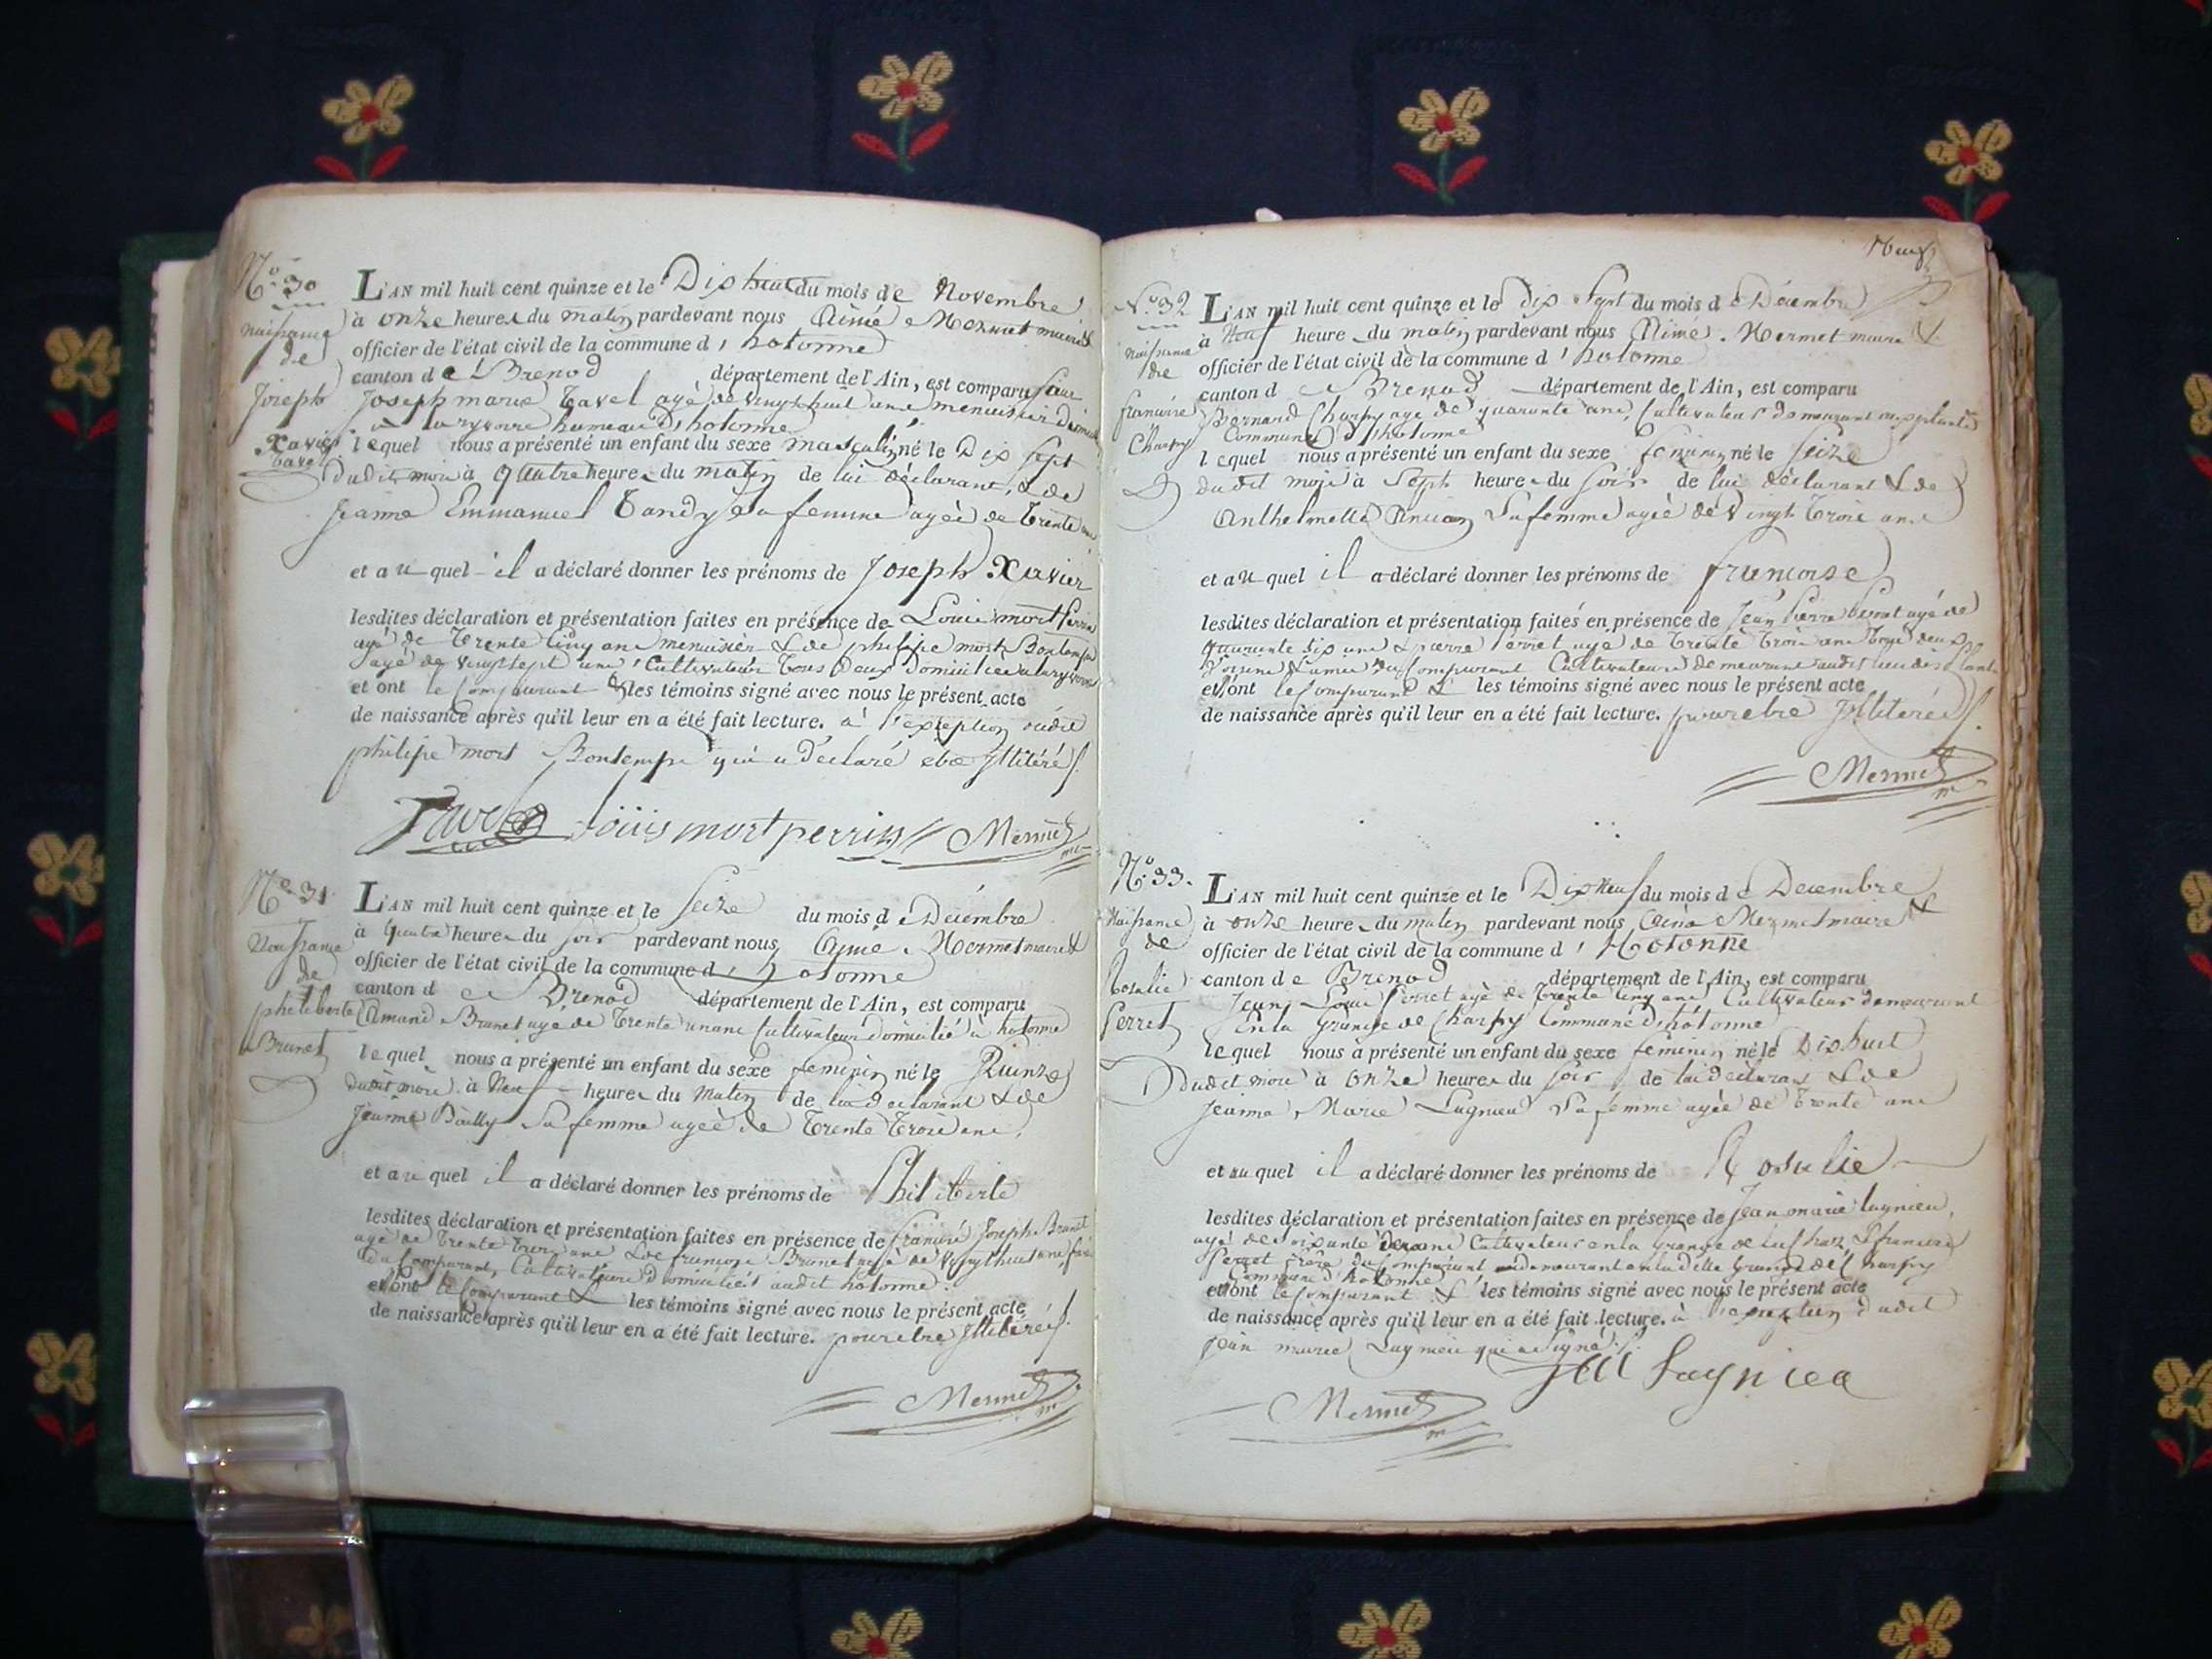 N.o 30
naissance
de
Joseph
Xavier
tavel
L'AN mil huit cent quinze et le Dix huit du mois de Novembre
à onze heures du matin pardevant nous Aimé Mermet maire &
officier de l'état civil de la commune d' hotonne
canton de Brenod département de l'Ain, est comparu Sieur
Joseph marie tavel agé de vingt huit ans menuisier
hameau d'hotonne
lequel nous a présenté un enfant du sexe masculin né le Dix sept
dudit mois à quatre heures du matin de lui déclarant, & de
Jeanne Emmanuel tandy sa femme agée de trente ans
et auquel il a déclaré donner les prénoms de Joseph Xavier
lesdites déclaration et présentation faites en présence de Louis mort Perrin
agé de trente cinq ans menuisier & de philipe mort Bontemps
agé de vingt sept ans, Cultivateur tous deux Domiciliés
et ont le Comparant & les témoins signé avec nous le présent acte
de naissance après qu'il leur en a été fait lecture. à l'exception dudit
philipe mort Bontemps qui a déclaré etre Illitéré
Tavel Loüis mort perrin Mermet
N.o 31
Naissance
de
pheliberte
Brunet
L'AN mil huit cent quinze et le Seize du mois de Décembre
à quatre heures du soir pardevant nous, Aymé Mermet maire &
officier de l'état civil de la commune d' hotonne
canton de Brenod département de l'Ain, est comparu
Amand Brunet agé de trente un ans Cultivateur domicilié à hotonne
lequel nous a présenté un enfant du sexe feminin né le Quinze
dudit mois à Neuf heures du matin de lui declarant & de
Jeanne Bailly Sa femme agée de trente trois ans,
et auquel il a déclaré donner les prénoms de Philiberte
lesdites déclaration et présentation faites en présence de francois Joseph Brunet
agé de trente trois ans & de françois Brunet agé de vingt huit ans
du Comparant, Cultivateurs domiciliés audit hotonne.
et ont le Comparant & les témoins signé avec nous le présent acte
de naissance après qu'il leur en a été fait lecture. pour etre Illitérés
Mermet
Neuf
N.o 32
naissance
de
francoise
Charpy
L'AN mil huit cent quinze et le dix sept du mois de Décembre
à Neuf heures du matin pardevant nous Aimé Mermet maire &
officier de l'état civil de la commune d' hotonne
canton de Brenod département de l'Ain, est comparu
Bernard Charpy agé de quarante ans, Cultivateur demeurant
Commune d'hotonne
lequel nous a présenté un enfant du sexe feminin né le seize
dudit mois à Sept heures du soir de lui déclarant & de
Anthelmette Ancian Sa femme agée de vingt trois ans
et auquel il a déclaré donner les prénoms de francoise
lesdites déclaration et présentation faites en présence de Jean Pierre agé de
quarante six ans & pierre Perret agé de trente trois ans tous deux
Voisins & amis du Comparant Cultivateurs demeurant audit lieu
et ont le Comparant & les témoins signé avec nous le présent acte
de naissance après qu'il leur en a été fait lecture. pour etre Illitérés
Mermet
N.o 33.
Naissance
de
Rosalie
Perret
L'AN mil huit cent quinze et le Dix Neuf du mois de Decembre
à onze heures du matin pardevant nous Aimé Mermet maire &
officier de l'état civil de la commune d' Hotonne
canton de Brenod département de l'Ain, est comparu
Jean Louis Perret agé de trente cinq ans Cultivateur demeurant
En la grange de Charpy Commune d'hotonne
lequel nous a présenté un enfant du sexe feminin né le Dix huit
dudit mois à onze heures du soir de lui declarant & de
Jeanne Marie Lugnieu Sa femme agée de trente ans
et auquel il a déclaré donner les prénoms de Rosalie
lesdites déclaration et présentation faites en présence de Jean marie lugnieu,
agé de soixante ans Cultivateur en la grange de & francois
Perret frère du Comparant demeurant en ladite grange de Charpy
Commune d'hotonne
et ont le Comparant & les témoins signé avec nous le présent acte
de naissance après qu'il leur en a été fait lecture. à l'exception dudit
Jean marie Lugnieu qui a Signé
Mermet